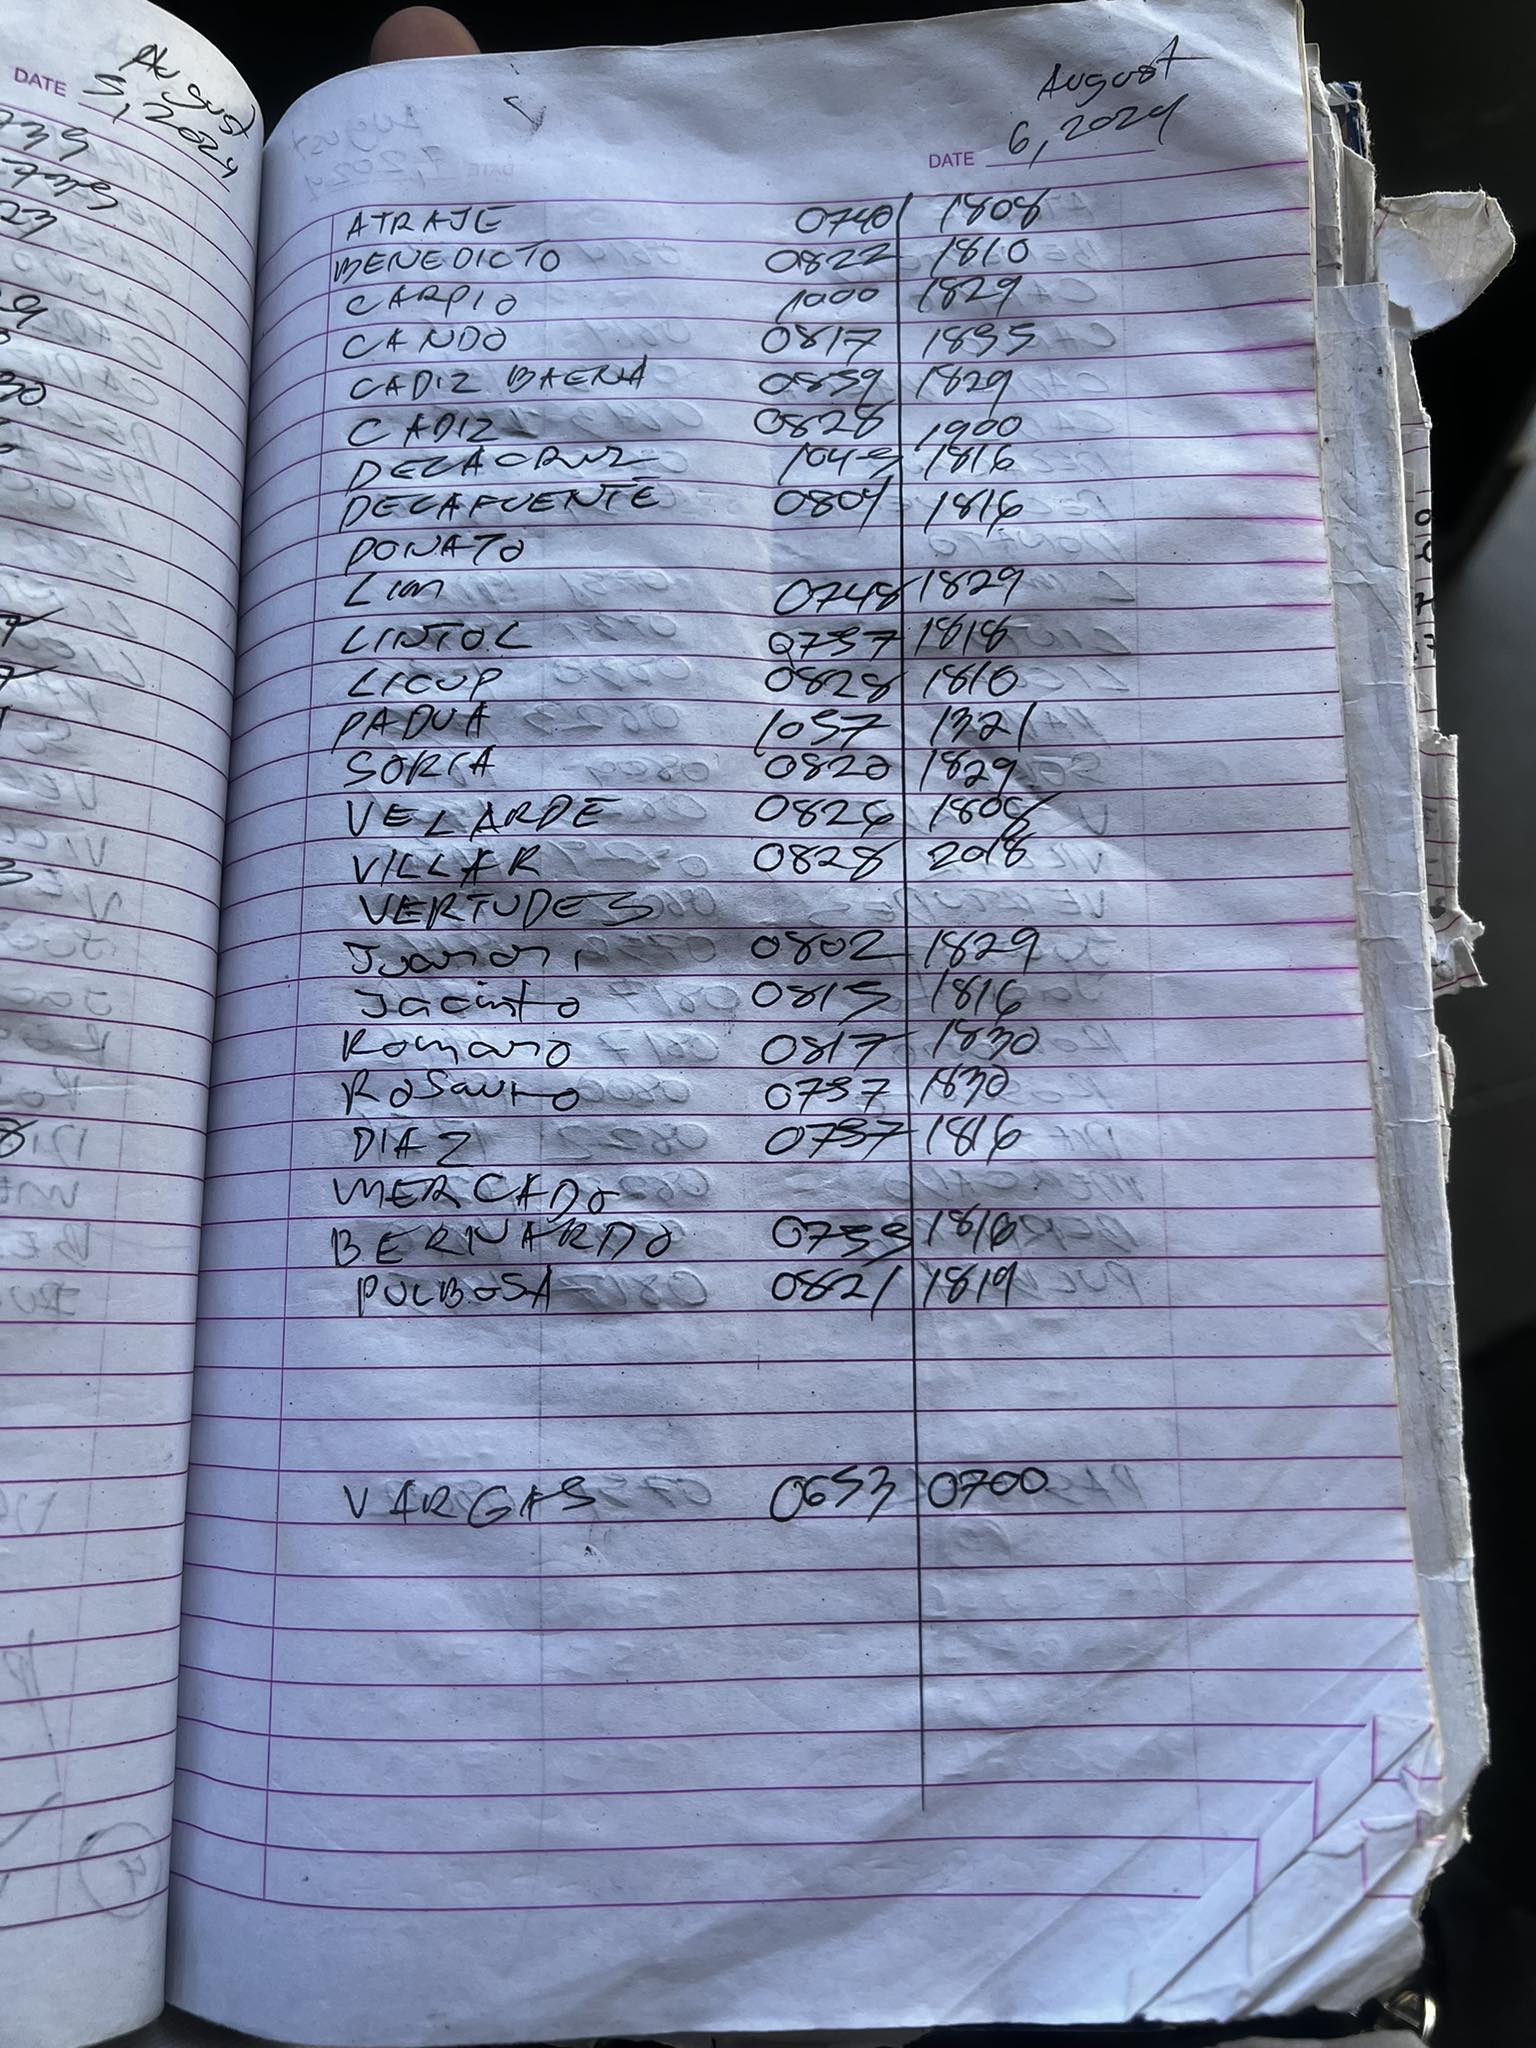 DATE August
5, 2024
August
DATE 6, 2024
ATRAJE 0740 1808
BENEDICTO 0822 1810
CARPIO 1000 1829
CANDO 0817 1835
CADIZ BAENA 0839 1829
CADIZ 0828 1900
DELACRUZ 1816
DELAFUENTE 0804 1816
DONATO
Lim 0748 1829
LINTOC 0737 1818
LICUP 0828 1810
PADUA 1057 1321
SORIA 0820 1829
VELARDE 0826 1808
VILLAR 0828 2018
VERTUDES
0802 1829
Jacinto 0815 1816
Romano 0817 1830
Rosauro 0737 1830
DIAZ 0737 1816
MERCADO
BERNARDO 1816
PULBOSA 0821 1819
VARGAS 0653 0700